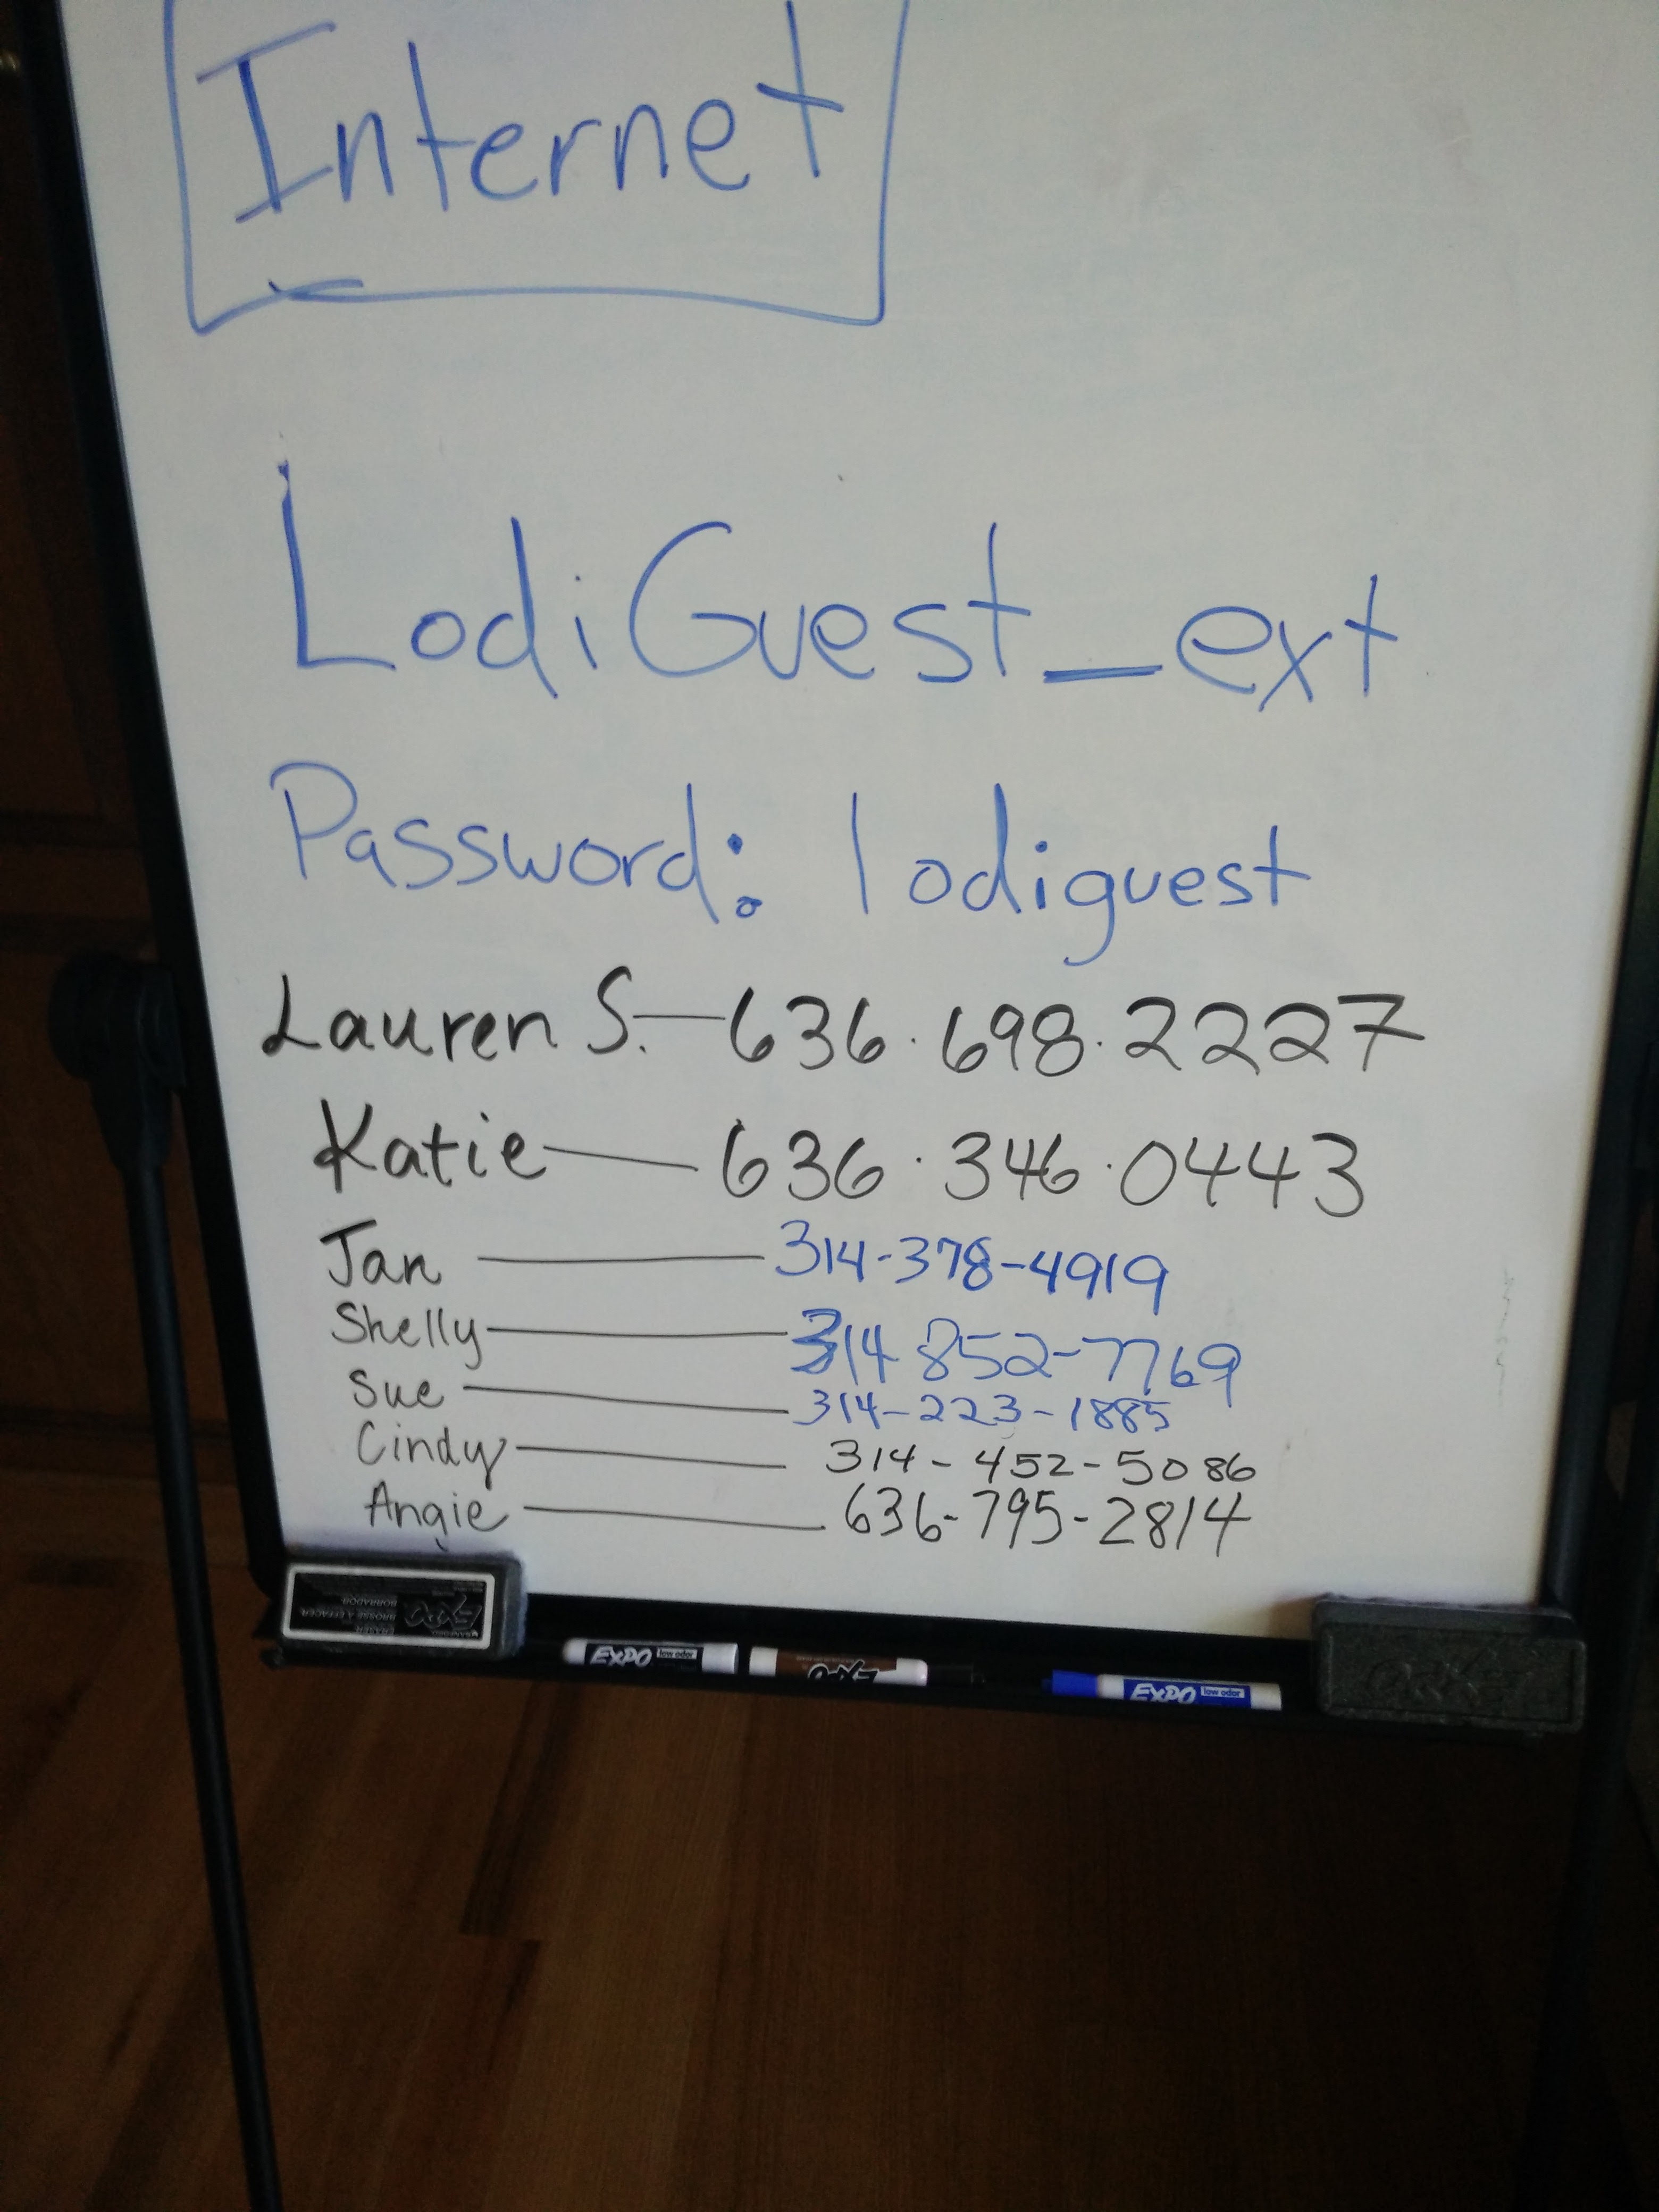 Internet
LodiGuest_ext
Password: lodiguest
Lauren S. — 636.698.2227
Katie — 636.346.0443
Jan — 314-378-4919
Shelly — 314-852-7769
Sue — 314-223-1885
Cindy — 314-452-5086
Angie — 636-795-2814
EXPO
ERASER
BROSSE À EFFACER
BORRADOR
EXPO low odor
EXPO
EXPO low odor
EXPO